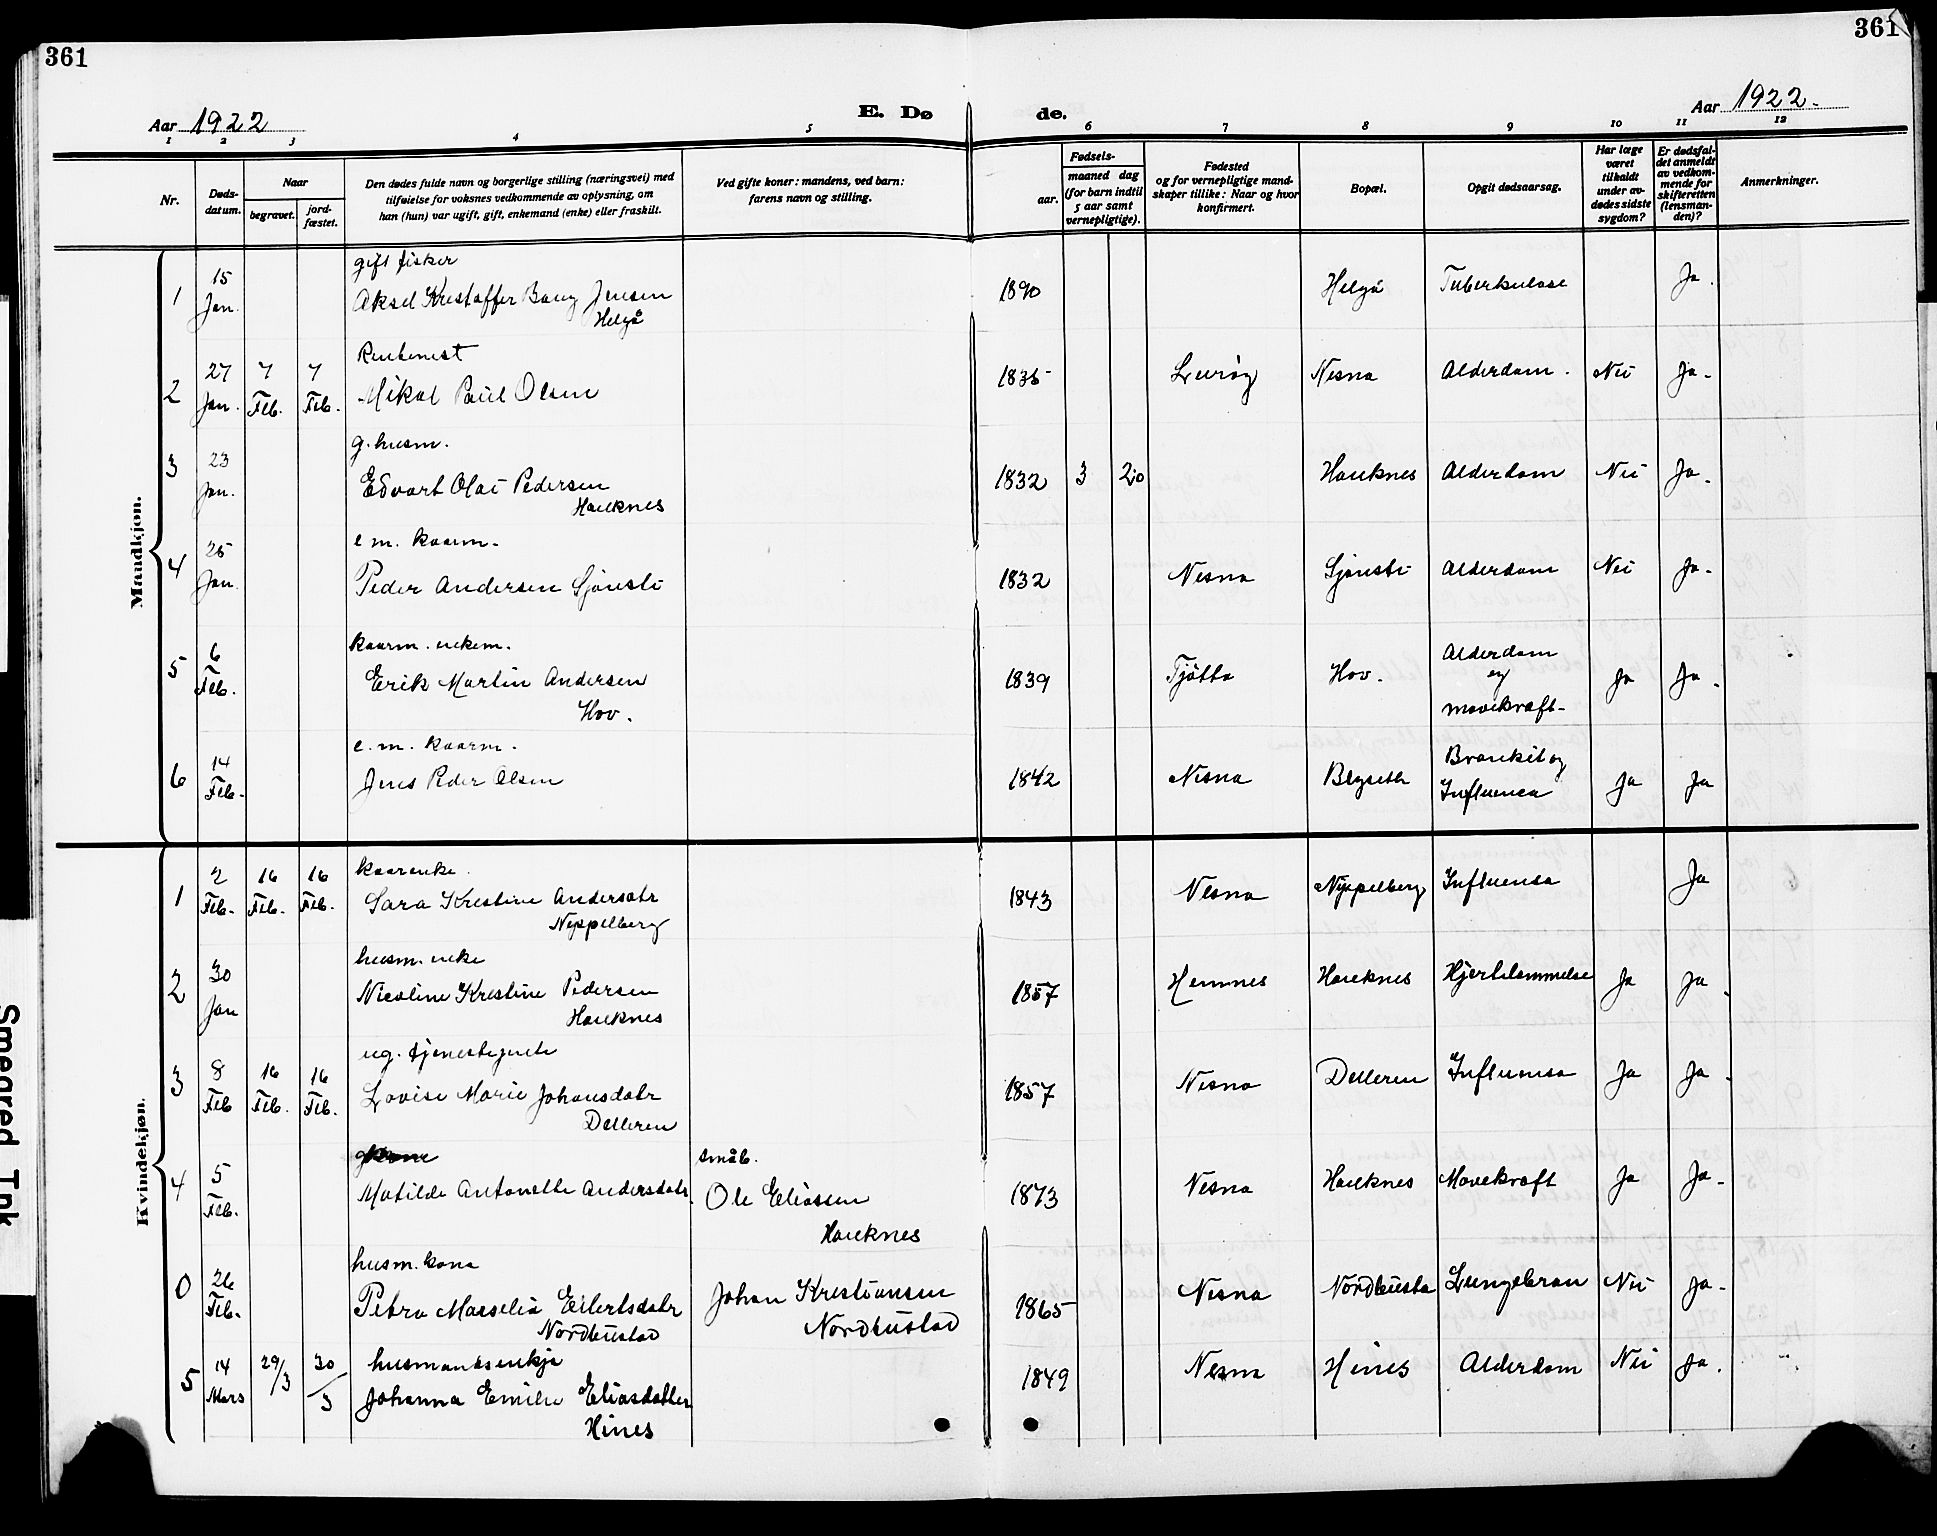 361
361
Aar 1922
E. Dø
de.
Aar 1922.
1 2 3 4 5 6 7 8 9 10 11 12
Nr.
Døds-
datum.
Naar
begravet.
jord-
fæstet.
Den dødes fulde navn og borgerlige stilling (næringsvei) med
tilføielse for voksnes vedkommende av oplysning, om
han (hun) var ugift, gift, enkemand (enke) eller fraskilt.
Ved gifte koner: mandens, ved barn:
farens navn og stilling.
Fødsels-
aar.
maaned dag
(for barn indtil
5 aar samt
vernepligtige).
Fødested
og for vernepligtige mand-
skaper tillike: Naar og hvor
konfirmert.
Bopæl.
Opgit dødsaarsag.
Har læge
været
tilkaldt
under av-
dødes sidste
sygdom?
Er dødsfal-
det anmeldt
av vedkom-
mende for
skifteretten
(lensman-
den)?
Anmerkninger.
Mandkjøn.
gift fisker
1 15 Jan. Aksel Kristoffer Jensen 1890 Helgå Tuberkulose Ja.
Helgå
2 27 Jan. 7 Feb. 7 Feb. Mikal Paul Olsen 1835 Lurøy Nesna Alderdom. Nei Ja.
g. husm.
3 23 Jan. Edvart Olai Pedersen 1832 3 20 Hauknes Alderdom Nei Ja.
Hauknes
e m. kaarm.
4 25 Jan. Peder Andersen Sjönsti 1832 Nesna Sjönsti Alderdom Nei Ja.
kaarm. enkem.
5 6 Feb. Erik Martin Andersen 1839 Tjötta Hov. Alderdom
og
mavekræft. Ja Ja.
Hov.
e. m. kaarm.
6 14 Feb. Jens Peder Olsen 1842 Nesna Bronkit og
Influensa Ja Ja
Kvindekjøn.
kaarenke.
1 2 Feb. 16 Feb. 16 Feb. Sara Krestine Andersdtr 1843 Nesna Nyppelberg Influensa Ja
Nyppelberg
husm. enke
2 30 Jan Nicoline Krestine Pedersen 1857 Hemnes Hauknes Hjertelammelse Ja Ja.
Hauknes
ug. tjenestejente
3 8 Feb 16 Feb. 16 Feb. Lovise Marie Johansdatr 1857 Nesna Delleren Influensa Ja Ja.
Delleren
småb.
4 5 Feb. Matilde Antonette Andersdatr. Ole Eliassen 1873 Nesna Hauknes Mavekræft Ja Ja.
Hauknes
husm. kona
0 26 Feb. Petra Marselia Eilertsdatr Johan Kristiansen 1865 Nesna Nordbusta Lungebran Nei Ja.
Nordbustad Nordbustad
husmandsenkje
5 14 Mars 29/3 30/3 Johanna Emilie Eliasdatter 1849 Nesna Hines Alderdom Nei Ja.
Hines
Smøgrød Tnk